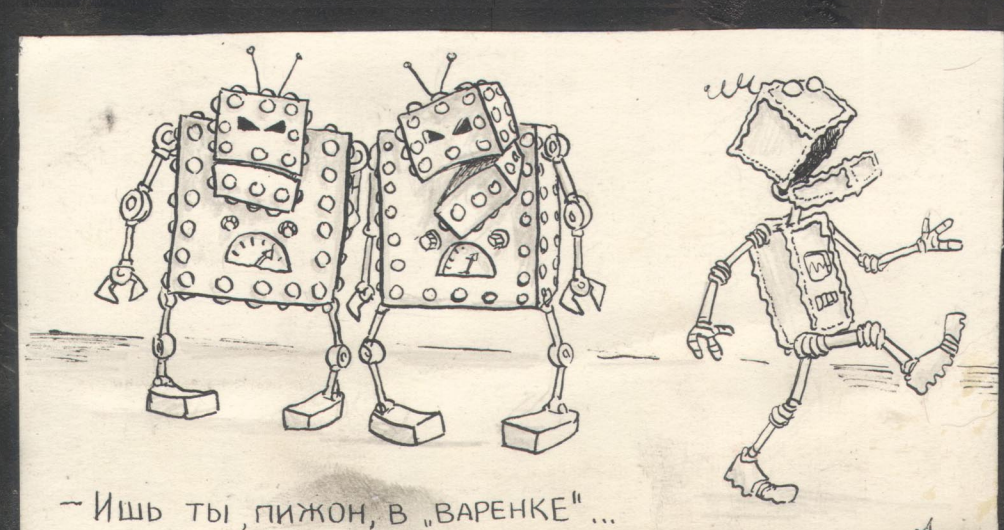 – Ишь ты, пижон, в „варенке“...